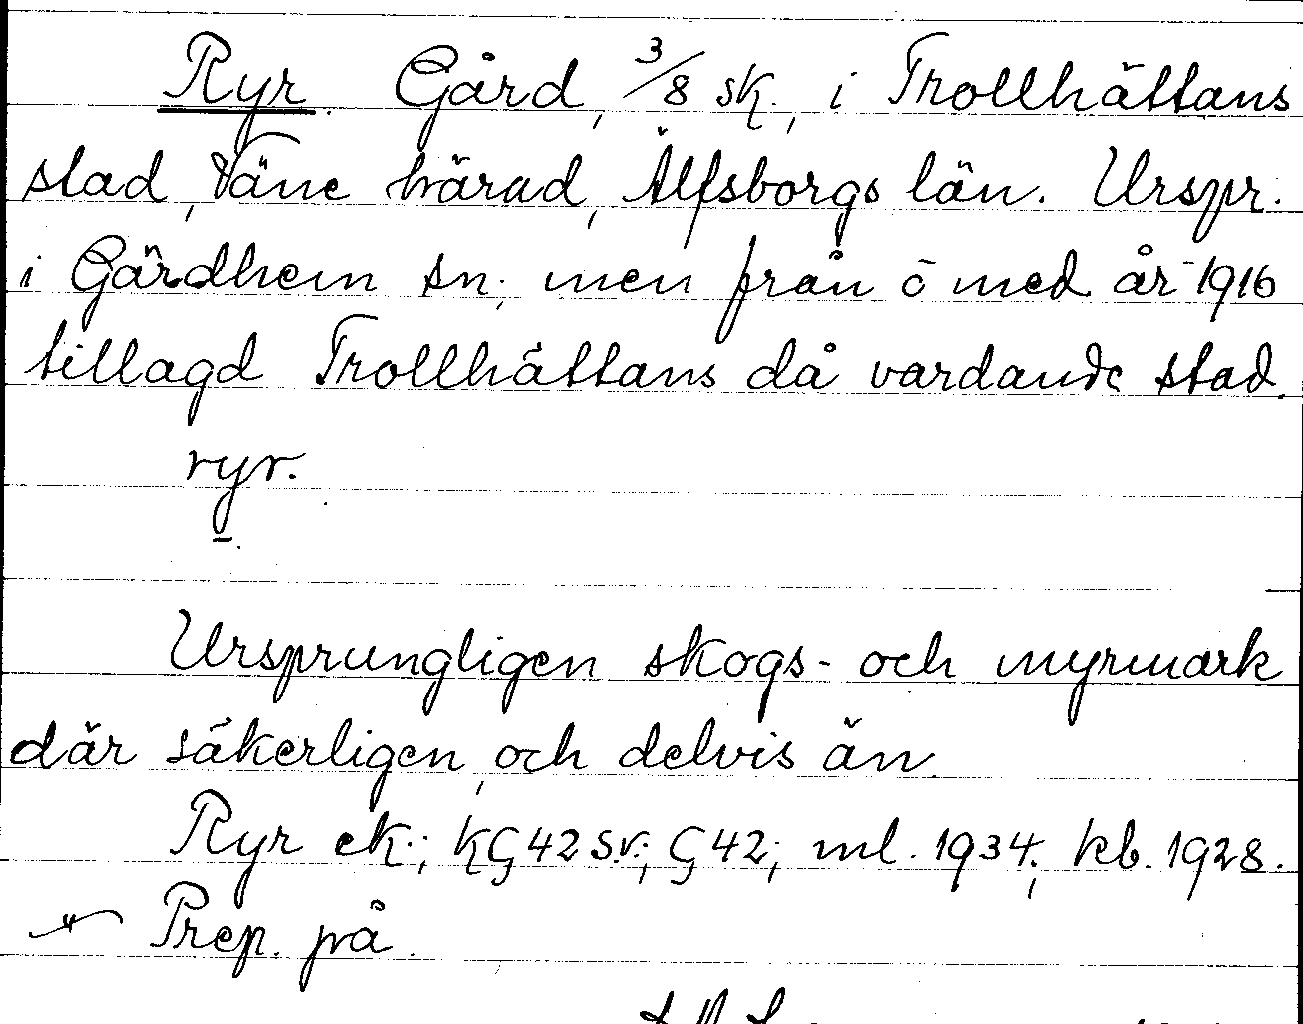 Ryr. Gård, 3/8 sk., i Trollhättans
stad, Väne härad, Älfsborgs län. Urspr.
i Gärdhem sn., men från o med år 1916
tillagd Trollhättans då vardande stad.
ryr.
Ursprungligen skogs- och myrmark
där säkerligen, och delvis än.
Ryr ek.; KG 42 s.v.; G 42; ml. 1934.; kb. 1928.
Prep. på.